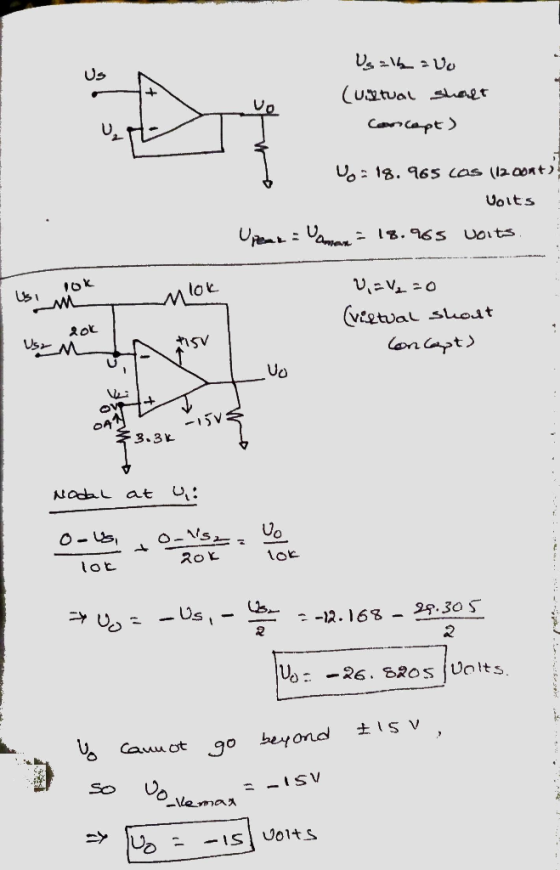 Us
+
U2
-
Uo
Us = V2 = Uo
(Virtual short
Concept)
Uo = 18.965 cos (1200πt)
Volts
Upeak = Uomax = 18.965 Volts.
Us1
10k
10k
Us2
20k
U1
-
+15V
Uo
V2
0V
+
0A↑
-15V
3.3k
U1 = V2 = 0
(Virtual short
Concept)
Nodal at U1:
0-Us1/10k + 0-Vs2/20k = Uo/10k
⇒ Uo = -Us1 - Us2/2 = -12.168 - 29.305/2
Uo = -26.8205 Volts.
Uo cannot go beyond ±15V,
so Uo-Vemax = -15V
⇒ Uo = -15 Volts